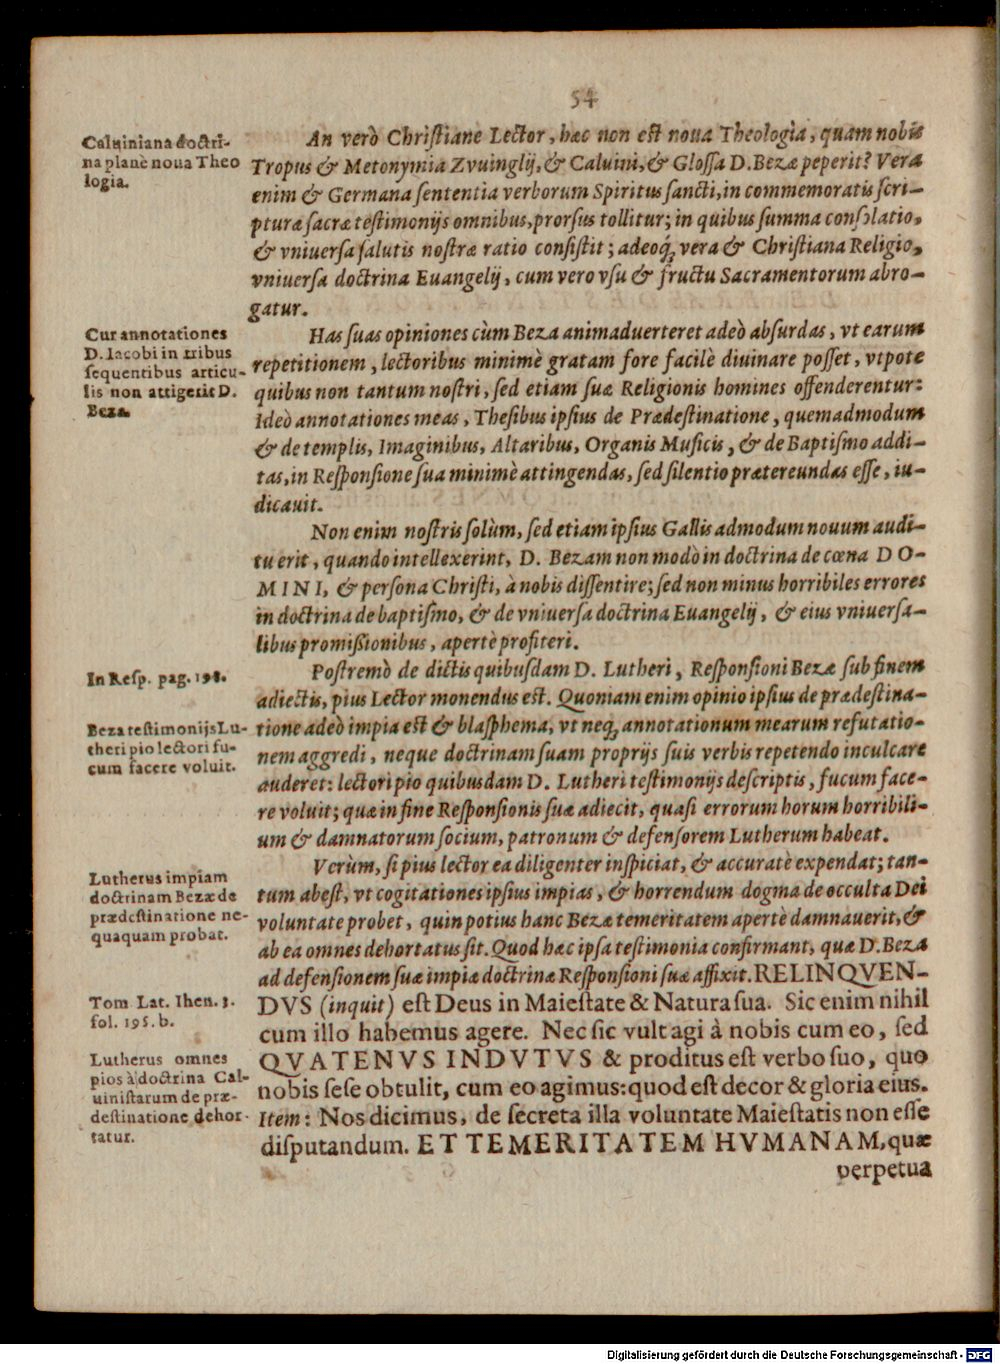 54
Caluiniana doctri-
na planè noua Theo
logia.
An verò Christiane Lector, hæc non est noua Theologia, quam nobis
Tropus & Metonymia Zvuinglij, & Caluini, & Glossa D. Bezæ peperit? Vera
enim & Germana sententia verborum Spiritus sancti, in commemoratis scri-
pturæ sacræ testimonijs omnibus, prorsus tollitur; in quibus summa consolatio,
& vniuersa salutis nostræ ratio consistit; adeoq́; vera & Christiana Religio,
vniuersa doctrina Euangelij, cum vero vsu & fructu Sacramentorum abro-
gatur.
Cur annotationes
D. Iacobi in tribus
sequentibus articu-
lis non attigerit D.
Beza.
Has suas opiniones cùm Beza animaduerteret adeò absurdas, vt earum
repetitionem, lectoribus minimè gratam fore facilè diuinare posset, vtpote
quibus non tantum nostri, sed etiam suæ Religionis homines offenderentur:
Ideò annotationes meas, Thesibus ipsius de Prædestinatione, quemadmodum
& de templis, Imaginibus, Altaribus, Organis Musicis, & de Baptismo addi-
tas, in Responsione sua minimè attingendas, sed silentio prætereundas esse, iu-
dicauit.
Non enim nostris solùm, sed etiam ipsius Gallis admodum nouum audi-
tu erit, quando intellexerint, D. Bezam non modò in doctrina de cœna DO-
MINI, & persona Christi, à nobis dissentire; sed non minus horribiles errores
in doctrina de baptismo, & de vniuersa doctrina Euangelij, & eius vniuersa-
libus promißionibus, apertè profiteri.
In Resp. pag. 198.
Postremò de dictis quibusdam D. Lutheri, Responsioni Bezæ sub finem
adiectis, pius Lector monendus est. Quoniam enim opinio ipsius de prædestina-
Beza testimonijs Lu-
theri pio lectori fu-
cum facere voluit.
tione adeò impia est & blasphema, vt neq; annotationum mearum refutatio-
nem aggredi, neque doctrinam suam proprijs suis verbis repetendo inculcare
auderet: lectori pio quibusdam D. Lutheri testimonijs descriptis, fucum face-
re voluit; quæ in fine Responsionis suæ adiecit, quasi errorum horum horribili-
um & damnatorum socium, patronum & defensorem Lutherum habeat.
Lutherus impiam
doctrinam Bezæ de
prædestinatione ne-
quaquam probat.
Verùm, si pius lector ea diligenter inspiciat, & accuratè expendat; tan-
tum abest, vt cogitationes ipsius impias, & horrendum dogma de occulta Dei
voluntate probet, quin potius hanc Bezæ temeritatem apertè damnauerit, &
ab ea omnes dehortatus sit. Quod hæc ipsa testimonia confirmant, quæ D. Beza
ad defensionem suæ impiæ doctrinæ Responsioni suæ affixit. RELINQVEN-
Tom Lat. Ihen. 3.
fol. 195. b.
DVS (inquit) est Deus in Maiestate & Natura sua. Sic enim nihil
cum illo habemus agere. Nec sic vult agi à nobis cum eo, sed
Lutherus omnes
pios à doctrina Cal-
uinistarum de præ-
destinatione dehor-
tatur.
QVATENVS INDVTVS & proditus est verbo suo, quo
nobis sese obtulit, cum eo agimus: quod est decor & gloria eius.
Item: Nos dicimus, de secreta illa voluntate Maiestatis non esse
disputandum. ET TEMERITATEM HVMANAM, quæ
perpetua
Digitalisierung gefördert durch die Deutsche Forschungsgemeinschaft - DFG